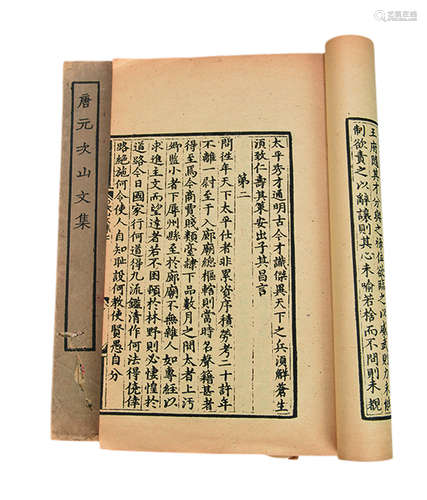 王府随其才分與之
制欲責之以辭讓則其心未喻若捨而不問則未覩
太平秀才通明古今才識傑異天下之兵須觧蒼生
須致仁壽其筞安出子其昌言
第二
問往年天下太平仕者非累資序積勞考二十許年
不離一尉至于入廊廟總樞轄則當時名聲籍甚者
得至焉今商賈賤類臺隸下品數月之間大者上汚
卿監小者下辱州縣至於廊廟不無雜人如專經以
求進主文而望達者若不困頓於林野則必悽惶於
道路今日國家行何道得九流鑑清作何法得僥倖
路絶施何令使人自知耻設何教使賢愚自分
唐元次山文集